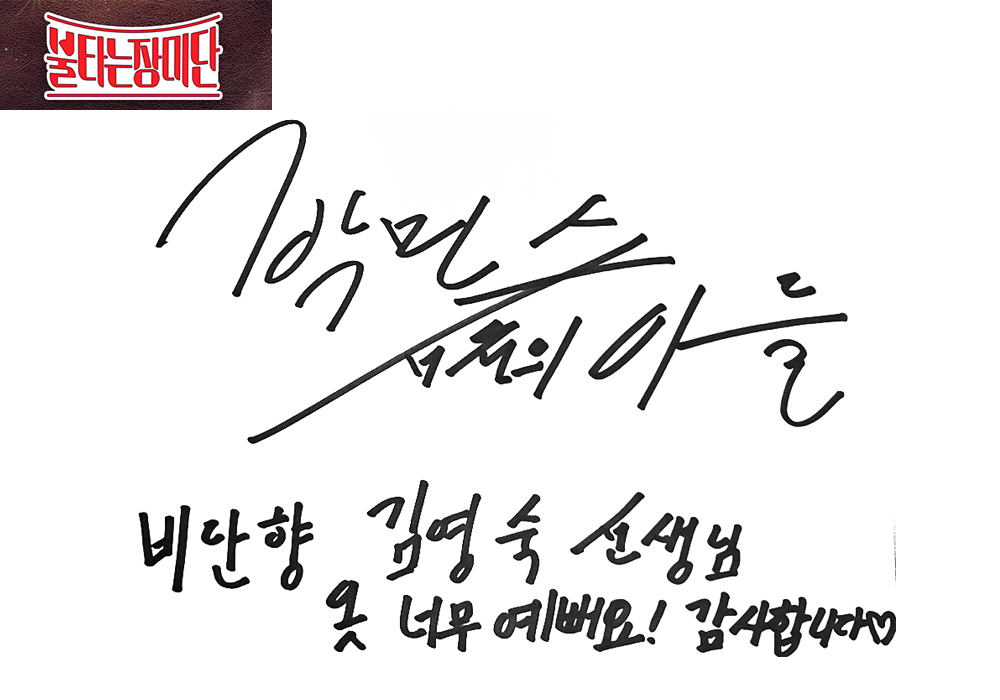 불타는장미단
박민수
서천의 아들
비단향 김영숙 선생님
옷 너무 예뻐요! 감사합니다♡